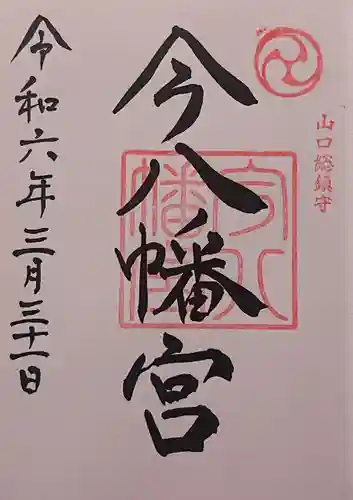 山口総鎮守
今八幡宮
令和六年三月三十一日